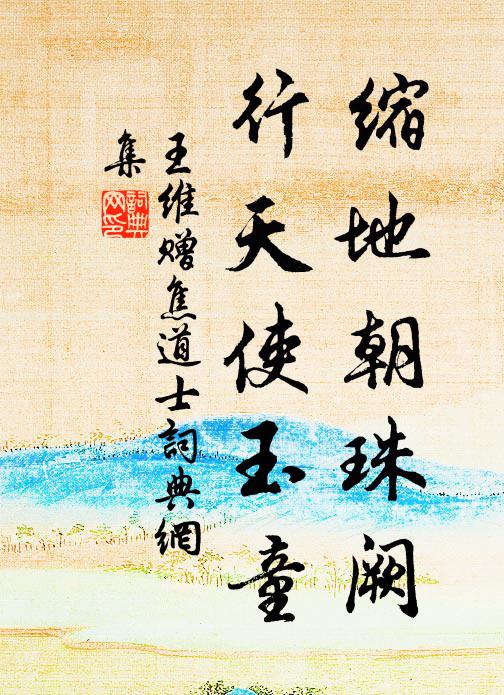 缩地朝珠阙
行天使玉童
王维赠焦道士詞典網
集
詞典
网印